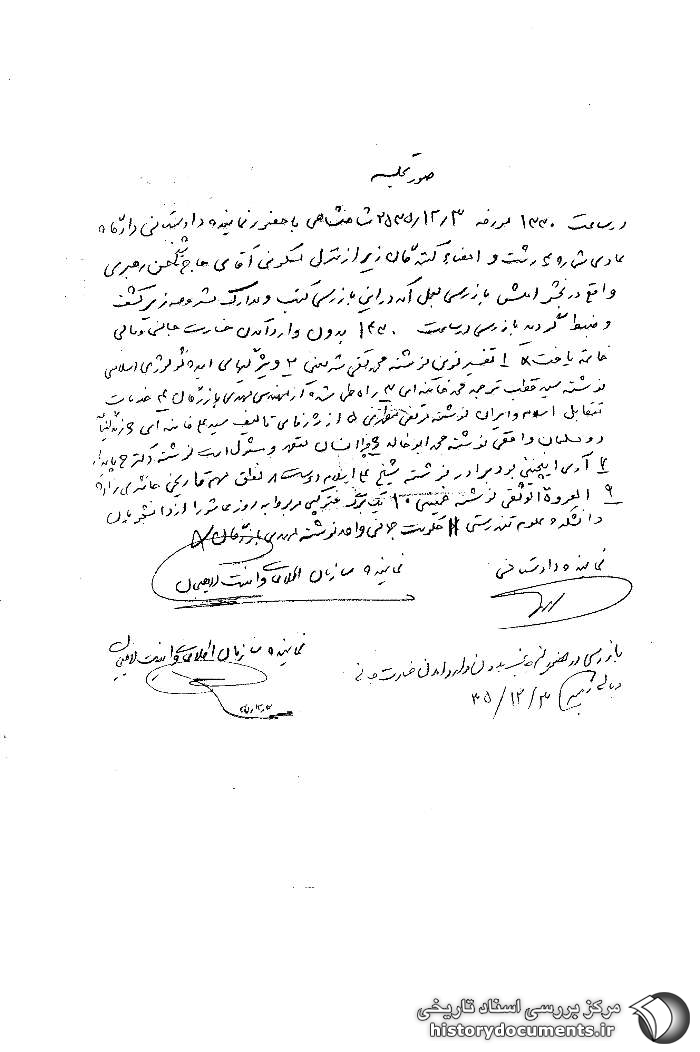 صورتجلسه
در ساعت ۱۳۳۰ مورخه ۲۵۳۵/۱۲/۳ شاهنشاهی با حضور نماینده دادستانی دادگاه
عادی شماره رشت و امضاء کنندگان زیر از منزل مسکونی آقای حاج حسن رهبری
واقع در بخش املش بازرسی بعمل آمد در این بازرسی کتب و مدارک مشروحه زیر کشف
و ضبط گردید بازرسی در ساعت ۱۴۳۰ بدون وارد آمدن خسارت جانی و مالی
خاتمه یافت ۱ تفسیر نوین نوشته محمد تقی شریعتی ۲ ویژگیهای ایده ئولوژی اسلامی
نوشته سید قطب ترجمه محمد خامنه ای ۳ راه طی شده از مهندس مهدی بازرگان ۴ خدمات
متقابل اسلام و ایران نوشته مرتضی مطهری ۵ از ژرفای تالیف سید علی خامنه ای ۶
دو مسلمان واقعی نوشته محمد ابو خالد چرا انسان متعهد و مسئول است نوشته دکتر
۷ آری اینچنین بود برادر نوشته شیخ علی اسلام دوست ۸ نطق مهم تاریخی
۹ العروة الوثقی نوشته خمینی ۱۰ یک برگ مربوط به روز عاشورا از دانشجویان
دانشکده علوم تندرستی ۱۱ حکومت جهانی واحد نوشته مهدی بازرگان
نماینده دادستانی
نماینده سازمان اطلاعات و امنیت لاهیجان
نماینده سازمان اطلاعات و امنیت لاهیجان
بازرسی در حضور اینجانب بدون وارد آمدن خسارت جانی
و مالی
۳۵/۱۲/۳
مرکز بررسی اسناد تاریخی
historydocuments.ir